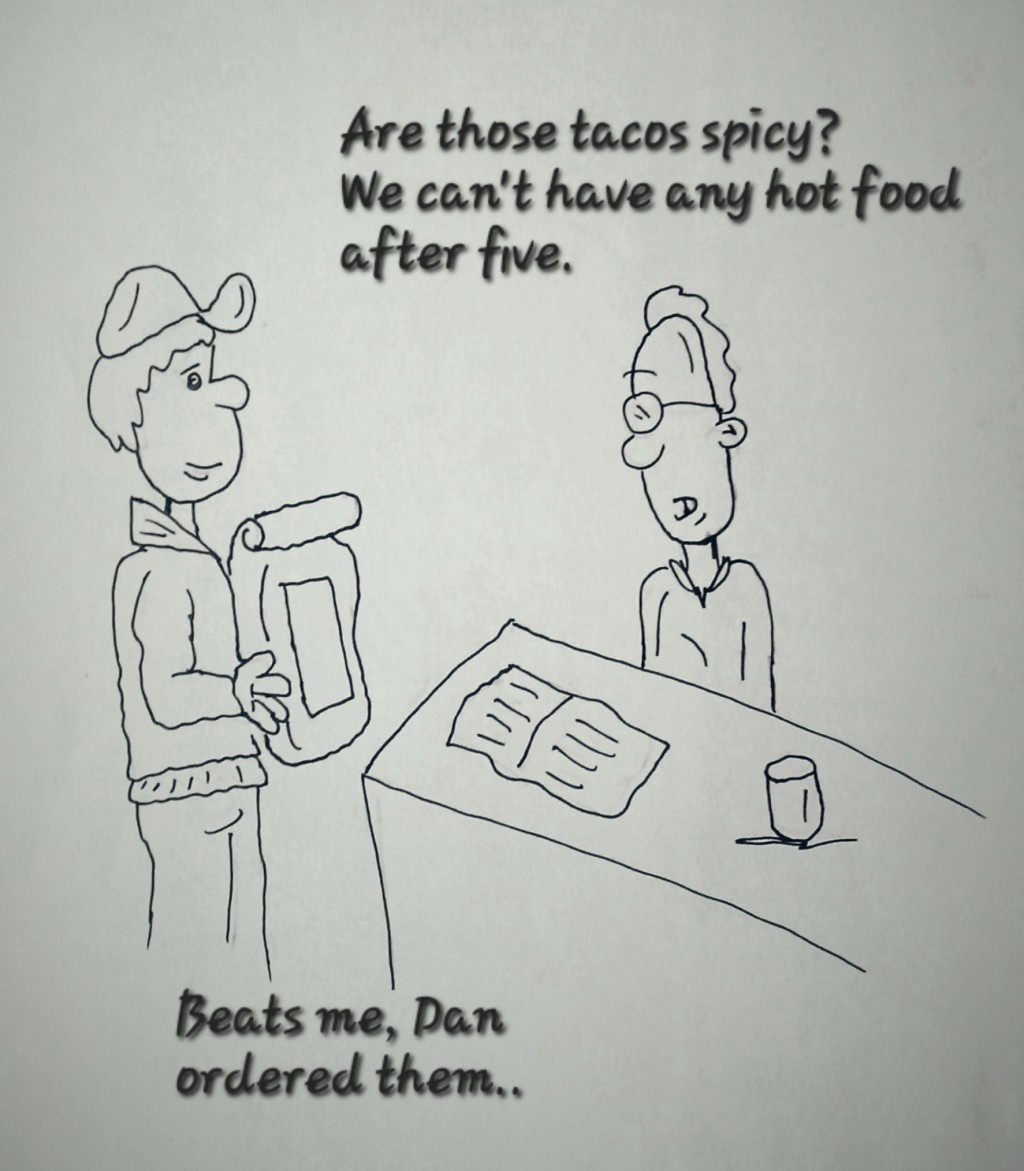 Are those tacos spicy?
We can't have any hot food
after five.
Beats me, Dan
ordered them..